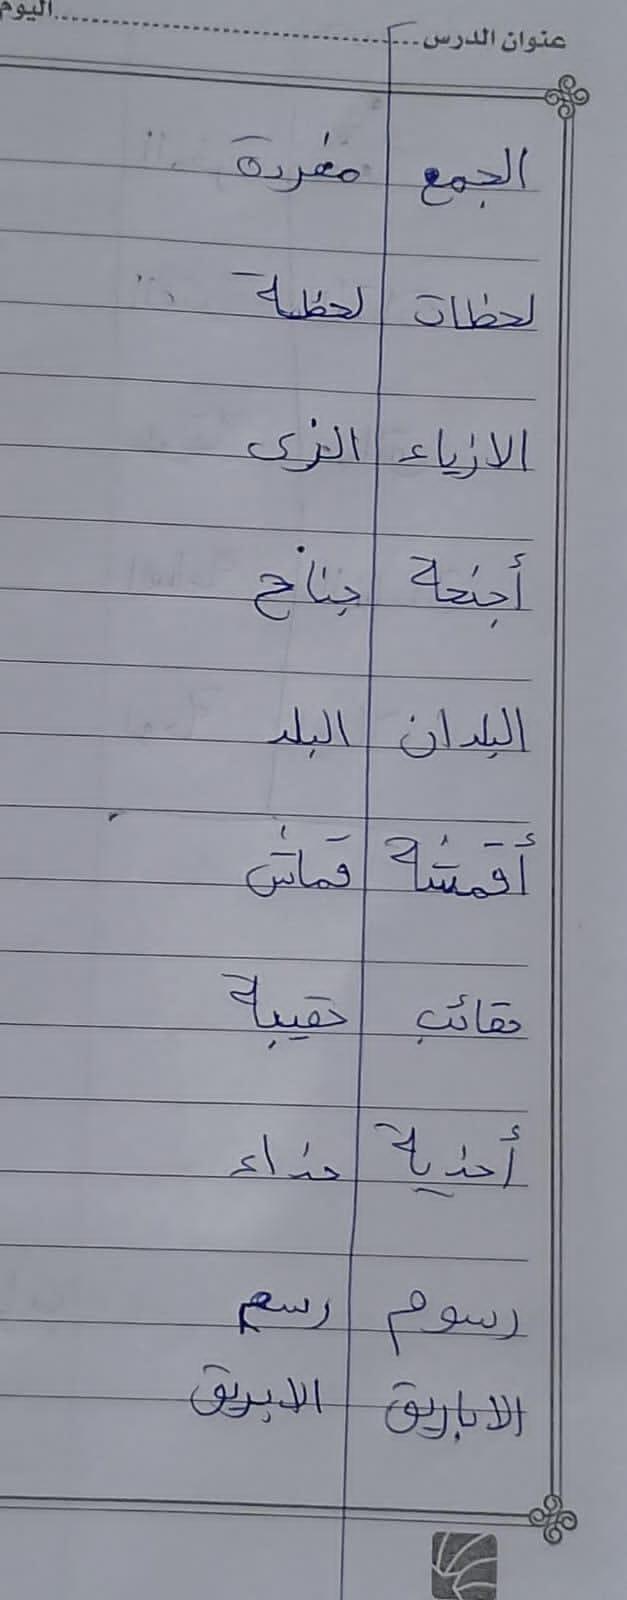 عنوان الدرس ........ اليوم
الجمع مفردة
لحظات لحظة
الازياء الزى
أجنحة جناح
البلدان البلد
أقمشة قماش
حقائب حقيبة
أحذية حذاء
رسوم رسم
الاباريق الابريق